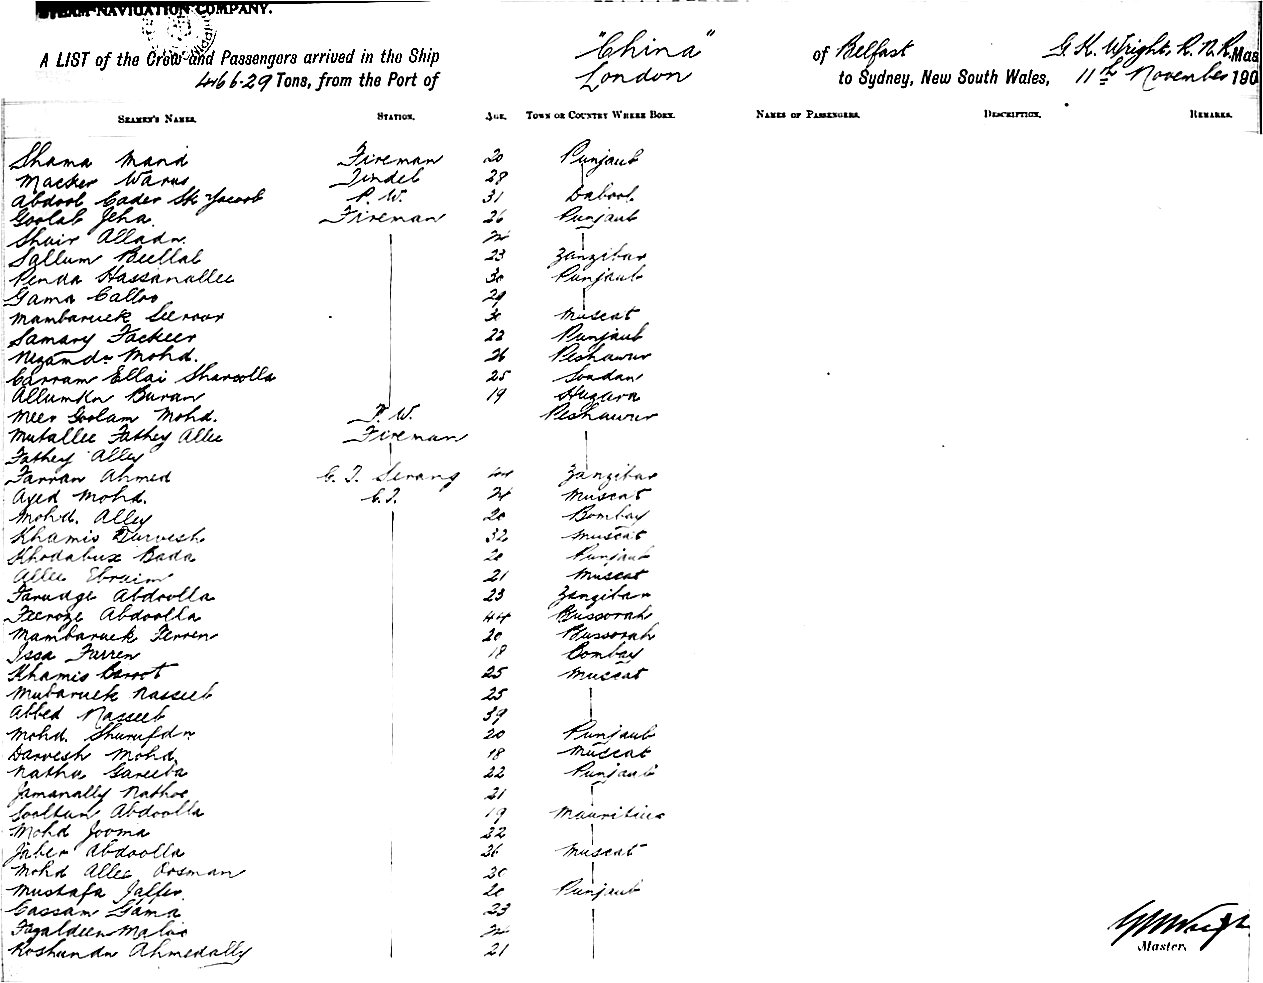 STEAM NAVIGATION COMPANY.
A LIST of the Crew and Passengers arrived in the Ship "China" of Belfast G. K. Wright, R. N. R. Mas
466·29 Tons, from the Port of London to Sydney, New South Wales, 11th November 190
SEAMEN'S NAMES. STATION. AGE. TOWN OR COUNTRY WHERE BORN. NAMES OF PASSENGERS. DESCRIPTION. REMARKS.
Shama Mand Fireman 20 Punjaub
Macker Warus Tindel 28
Abdool Cader Sk Yacoob P. W. 31 Dabool
Goolab Jeha Fireman 26 Punjaub
Shair Alladn
Sallum Bullal 23 Zanzibar
Penda Hassanallee 30 Punjaub
Gama Calloo 29
Mambaruck Seeroor 30 Muscat
Samary Fackeer 22 Punjaub
Nezamdn Mohd. 26 Peshawur
Carram Ellai Sharoolla 25 Soudan
Allumkn Buran 19 Huzara
Meer Goolam Mohd. P. W. Peshawur
Mutallee Fathey Allee Fireman
Fathey Alley
Farran Ahmed C. T. Serang 44 Zanzibar
Ayed Mohd. C. T. 24 Muscat
Mohd. Alley 20 Bombay
Khamis Durvesh 32 Muscat
Khodabux Bada 20 Punjaub
Allee Ebraim 21 Muscat
Farudge Abdoolla 23 Zanzibar
Feeroze Abdoolla 44 Bussorah
Mambaruck Ferren 20 Bussorah
Issa Furren 18 Bombay
Khamis Baroot 25 Muscat
Mubaruck Nasseeb 25
Abbed Nasseeb 39
Mohd. Shurufdn 20 Punjaub
Darvesh Mohd. 18 Muscat
Nathu Gareeba 22 Punjaub
Jamanally Nathoo 21
Sooltun Abdoolla 19 Mauritius
Mohd Jooma 22
Jaber Abdoolla 26 Muscat
Mohd Allee Oosman 20
Mustafa Jaffer 20 Punjaub
Cassam Gama 23
Fazaldeen Maloo 24
Roshundn Ahmedally 21
Master.